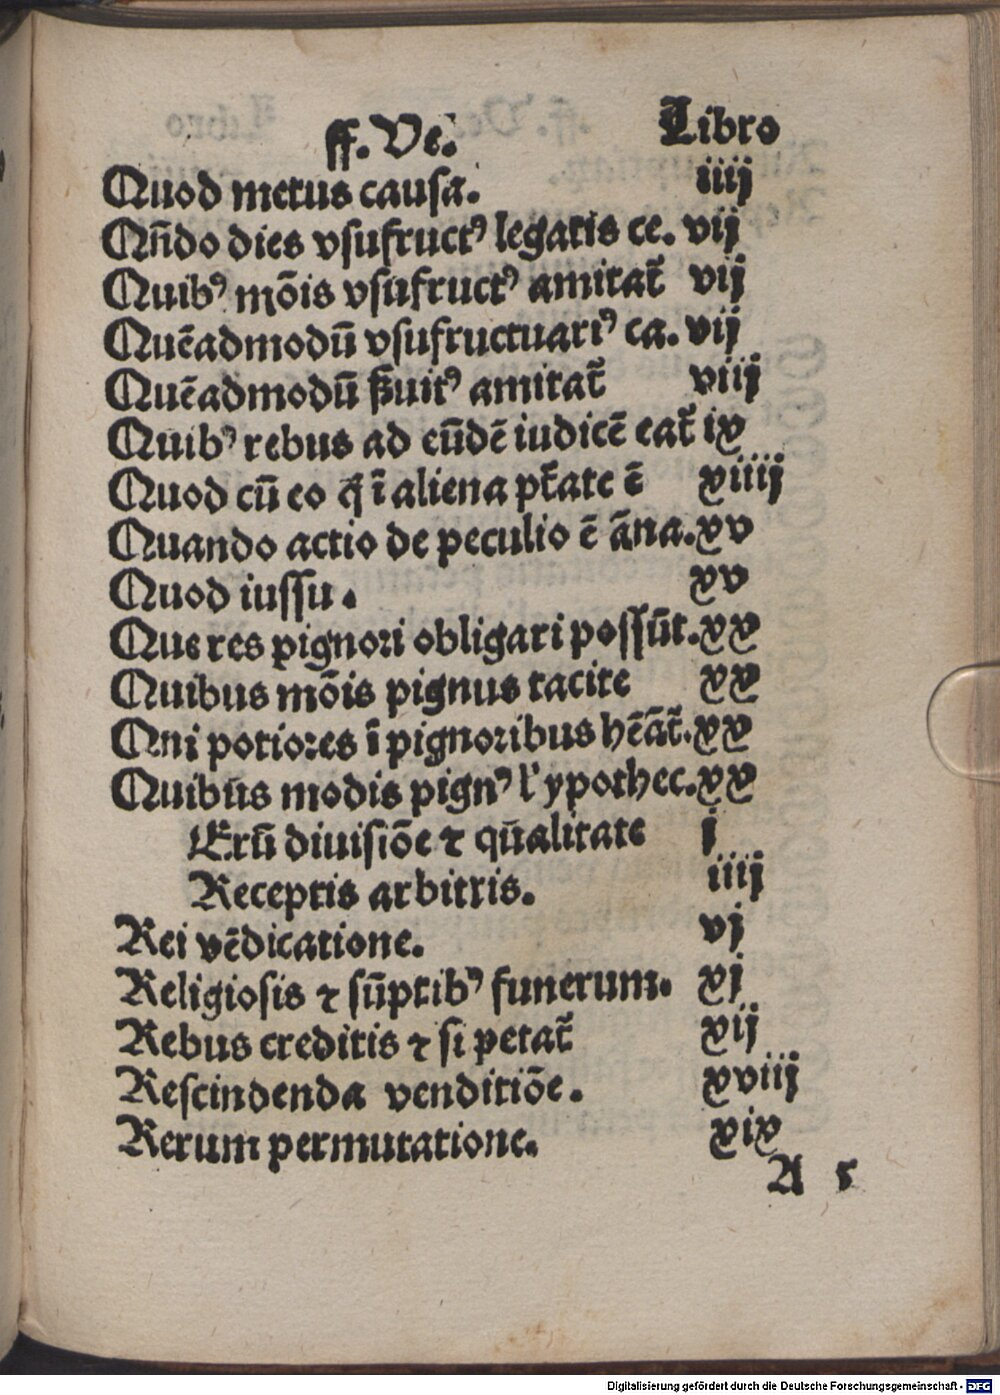 ff. Ve. Libro
Quod metus causa. iiij
Qñdo dies vsufructꝰ legatis ce. vij
Quibꝰ mõis vsufructꝰ amitat̃ vij
Quẽadmodũ vsufructuariꝰ ca. vij
Quẽadmodũ ẞuitꝰ amitat̃ viij
Quibꝰ rebus ad eũdẽ iudicẽ eat̃ ix
Quod cũ eo q̃ ĩ aliena pt̃ate ẽ xiiij
Quando actio de peculio ẽ ãna. xv
Quod iussu. xv
Que res pignori obligari possũt. xx
Quibus mõis pignus tacite xx
Qni potiores ĩ pignoribus hẽãt̃. xx
Quibũs modis pignꝰ l' ypothec. xx
Erũ diuisiõe ⁊ qũalitate j
Receptis arbitris. iiij
Rei vẽdicatione. vj
Religiosis ⁊ sũptibꝰ funerum. xj
Rebus creditis ⁊ si petat̃ xij
Rescindenda venditiõe. xviij
Rerum permutatione. xix
A 5
Digitalisierung gefördert durch die Deutsche Forschungsgemeinschaft - DFG